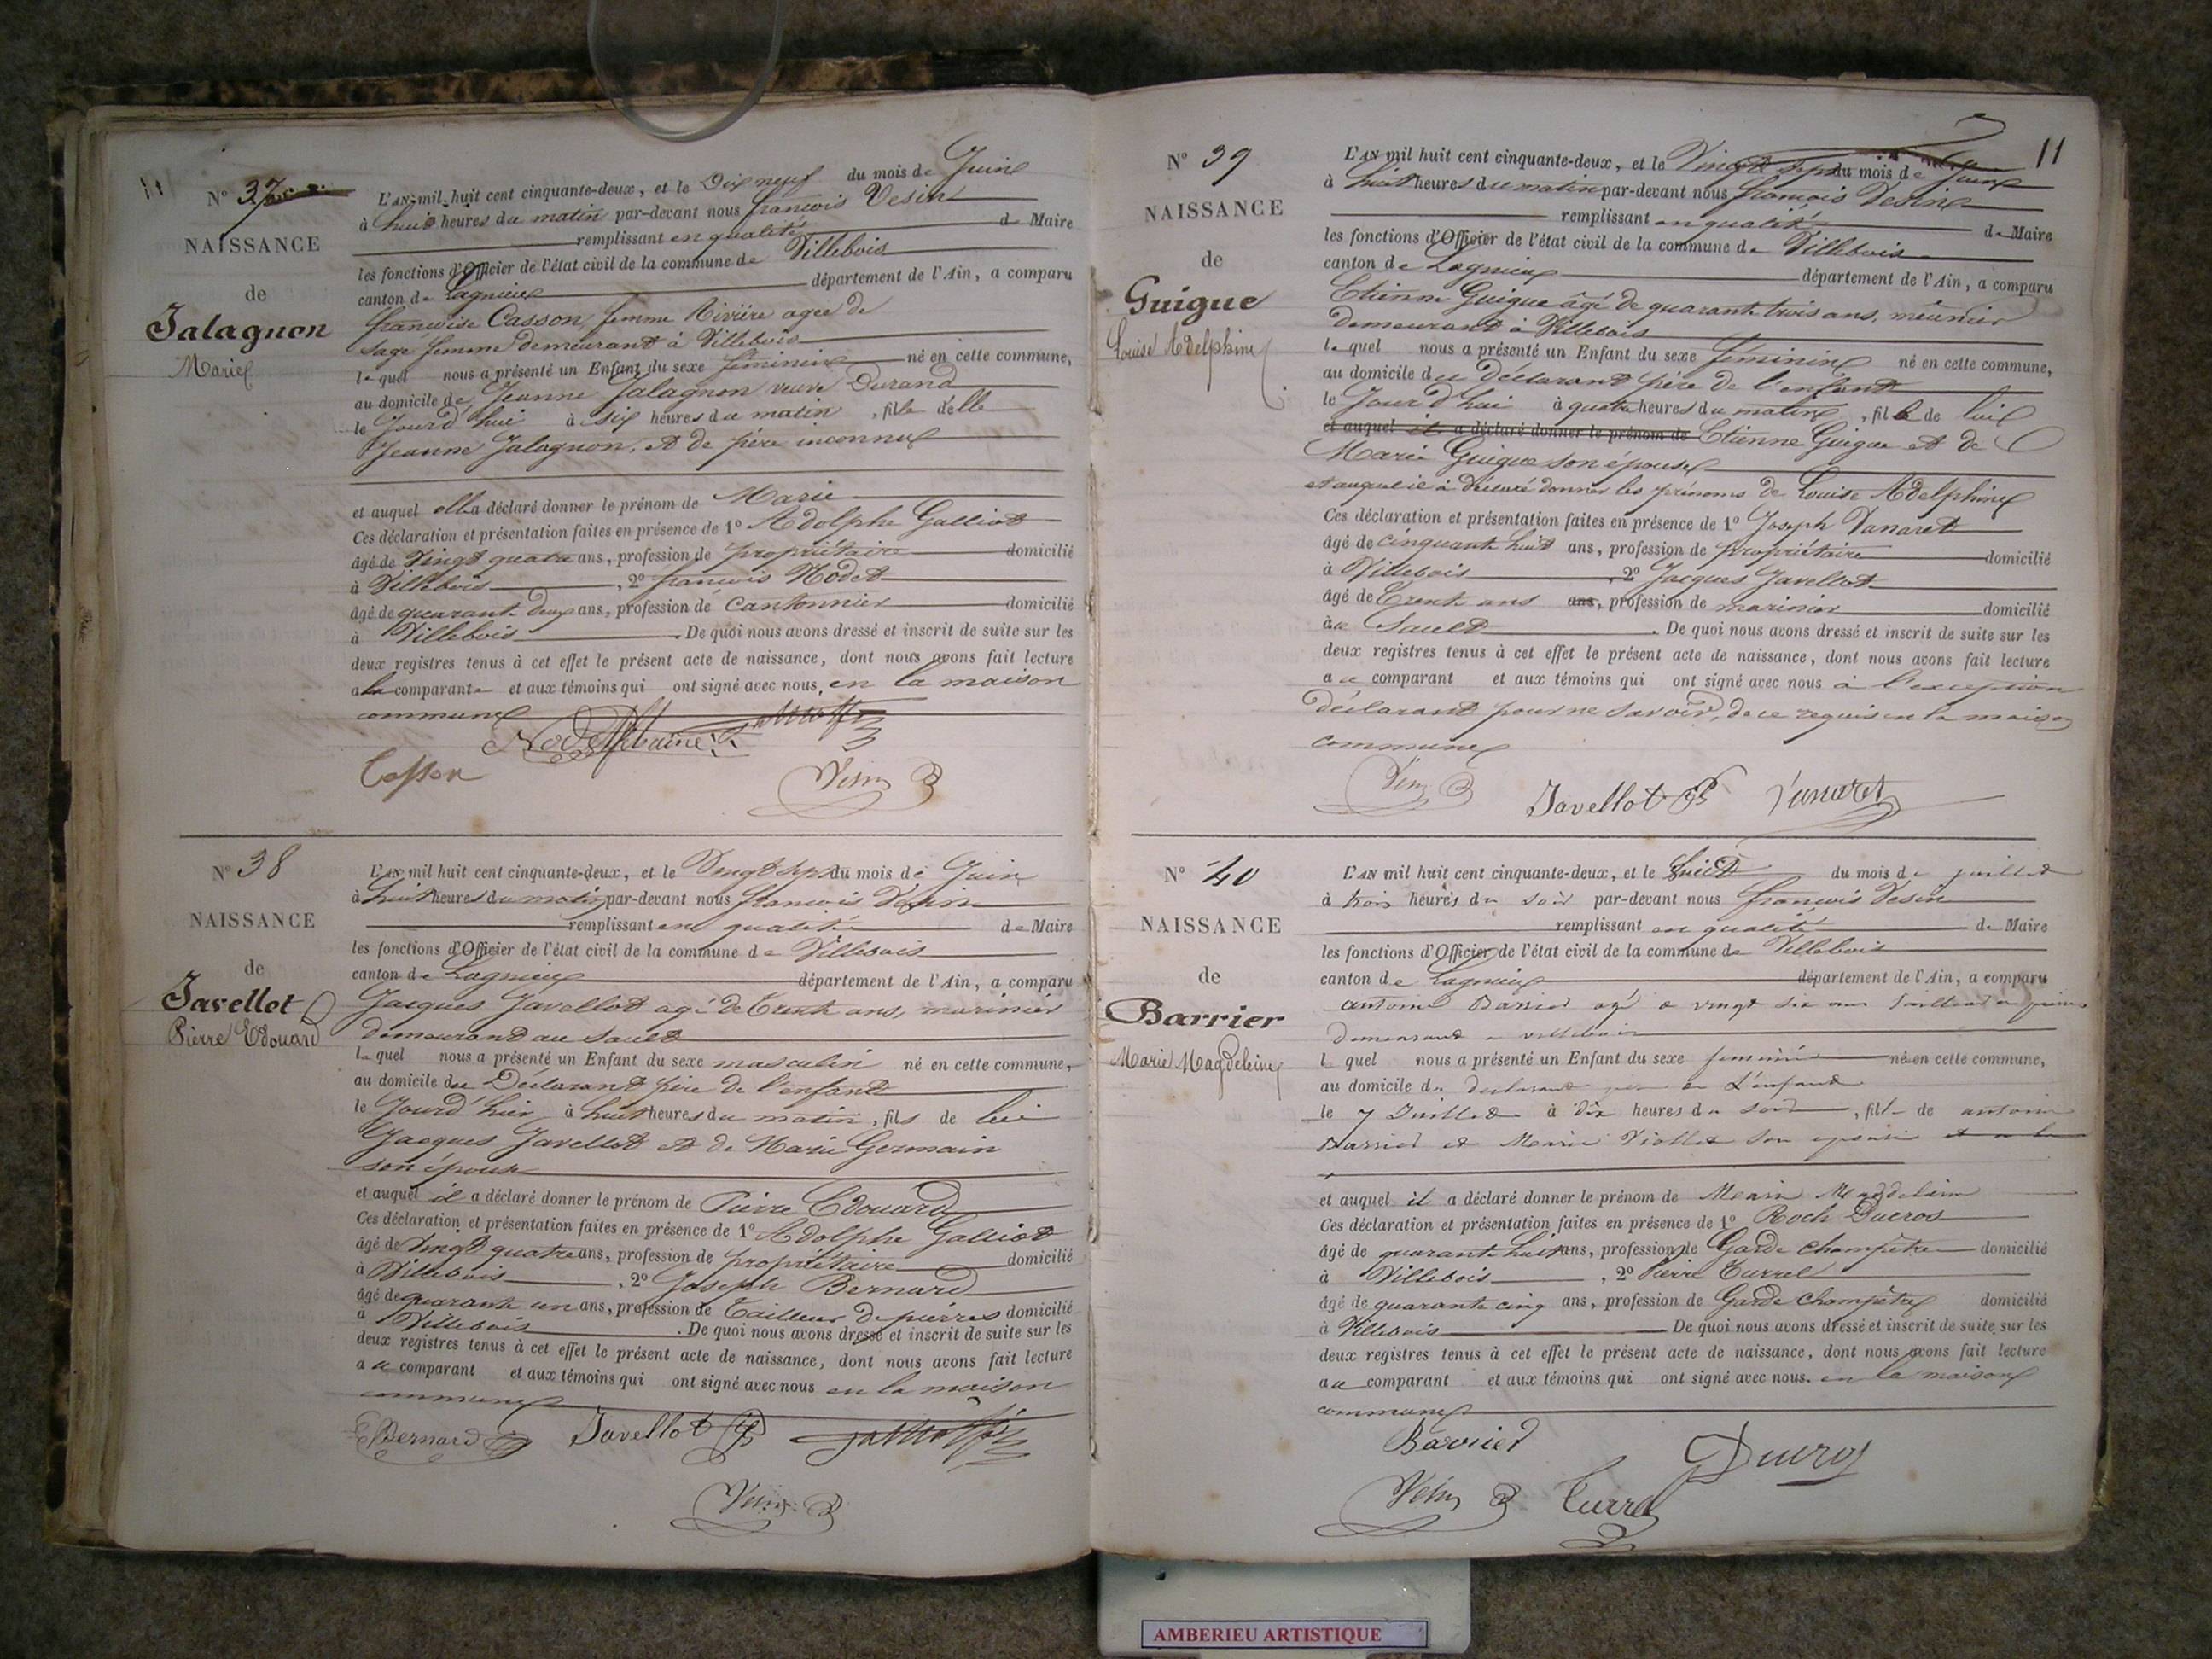 N° 37
NAISSANCE
de
Jalagnon
Marie
L'AN mil huit cent cinquante-deux, et le Dix neuf du mois de Juin
à huit heures du matin par-devant nous françois Vesin
remplissant en qualité de Maire
les fonctions d'Officier de l'état civil de la commune de Villebois
canton de Lagnieu département de l'Ain, a comparu
françoise Casson, femme Rivière agée de
sage femme demeurant à Villebois
lequel nous a présenté un Enfant du sexe féminin né en cette commune,
au domicile de Jeanne Jalagnon veuve Durand
le Jourd'hui à six heures du matin, fille d'elle
Jeanne Jalagnon, et de père inconnu
et auquel elle a déclaré donner le prénom de Marie
Ces déclaration et présentation faites en présence de 1° Adolphe Galliot
âgé de Vingt quatre ans, profession de propriétaire domicilié
à Villebois, 2° françois Nodet
âgé de quarante deux ans, profession de Cantonnier domicilié
à Villebois. De quoi nous avons dressé et inscrit de suite sur les
deux registres tenus à cet effet le présent acte de naissance, dont nous avons fait lecture
a la comparante et aux témoins qui ont signé avec nous, en la maison
commune
Casson
Vesin
N° 38
NAISSANCE
de
Javellot
Pierre Edouard
L'AN mil huit cent cinquante-deux, et le Vingt sept du mois de Juin
à huit heures du matin par-devant nous françois Vesin
remplissant en qualité de Maire
les fonctions d'Officier de l'état civil de la commune de Villebois
canton de Lagnieu département de l'Ain, a comparu
Jacques Javellot agé de Trente ans, marinier
demeurant au Sault
lequel nous a présenté un Enfant du sexe masculin né en cette commune,
au domicile du Déclarant père de l'enfant
le Jourd'hier à huit heures du matin, fils de lui
Jacques Javellot et de Marie Germain
son épouse
et auquel il a déclaré donner le prénom de Pierre Edouard
Ces déclaration et présentation faites en présence de 1° Adolphe Galliot
âgé de Vingt quatre ans, profession de propriétaire domicilié
à Villebois, 2° Joseph Bernard
âgé de quarante un ans, profession de Tailleur de pierres domicilié
à Villebois. De quoi nous avons dressé et inscrit de suite sur les
deux registres tenus à cet effet le présent acte de naissance, dont nous avons fait lecture
au comparant et aux témoins qui ont signé avec nous en la maison
commune
Bernard Javellot
Vesin
11
N° 39
NAISSANCE
de
Guigue
Louise Adelphine
L'AN mil huit cent cinquante-deux, et le Vingt sept du mois de Juin
à huit heures du matin par-devant nous françois Vesin
remplissant en qualité de Maire
les fonctions d'Officier de l'état civil de la commune de Villebois
canton de Lagnieu département de l'Ain, a comparu
Etienne Guigue âgé de quarante trois ans, meûnier
demeurant à Villebois
lequel nous a présenté un Enfant du sexe féminin né en cette commune,
au domicile du déclarant père de l'enfant
le Jourd'hui à quatre heures du matin, fille de lui
et auquel il a déclaré donner le prénom de Etienne Guigue et de
Marie Guigue son épouse
et auquel il à déclaré donner les prénoms de Louise Adelphine
Ces déclaration et présentation faites en présence de 1° Joseph Vanaret
âgé de cinquante huit ans, profession de propriétaire domicilié
à Villebois, 2° Jacques Javellot
âgé de Trente ans ans, profession de marinier domicilié
au Sault. De quoi nous avons dressé et inscrit de suite sur les
deux registres tenus à cet effet le présent acte de naissance, dont nous avons fait lecture
au comparant et aux témoins qui ont signé avec nous à l'exception
déclarant pour ne savoir, de ce requis en la maison
commune
Vesin Javellot Vanaret
N° 40
NAISSANCE
de
Barrier
Marie Magdeleine
L'AN mil huit cent cinquante-deux, et le huit du mois de juillet
à trois heures du soir par-devant nous françois Vesin
remplissant en qualité de Maire
les fonctions d'Officier de l'état civil de la commune de Villebois
canton de Lagnieu département de l'Ain, a comparu
antoine Barrier agé de vingt six ans tailleur de pierre
demeurant a villebois
lquel nous a présenté un Enfant du sexe feminin né en cette commune,
au domicile du declarant père de L'enfant
le 7 Juillet à dix heures du soir, fille de antoine
Barrier et Marie Viollet son epouse
et auquel il a déclaré donner le prénom de Marie Magdelaine
Ces déclaration et présentation faites en présence de 1° Roch Ducros
âgé de quarante huit ans, profession de Garde champêtre domicilié
à Villebois, 2° Pierre Turrel
âgé de quarante cinq ans, profession de Garde champêtre domicilié
à Villebois De quoi nous avons dressé et inscrit de suite sur les
deux registres tenus à cet effet le présent acte de naissance, dont nous avons fait lecture
au comparant et aux témoins qui ont signé avec nous. en la maison
commune
Barrier Ducros
Vesin Turrel
AMBERIEU ARTISTIQUE